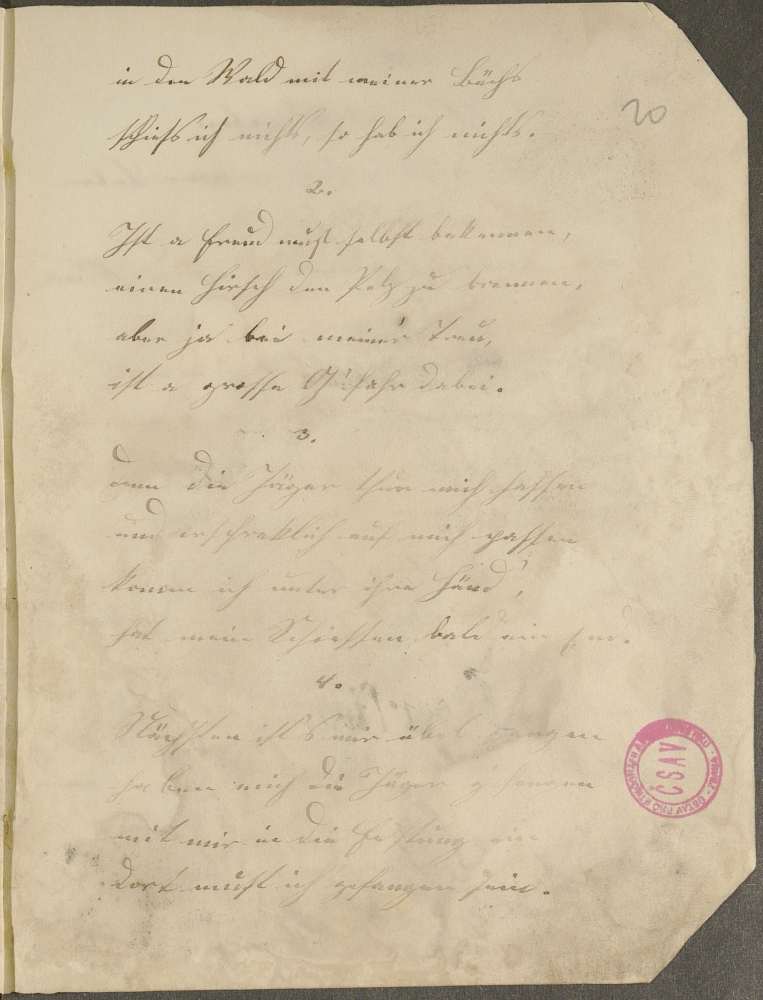 in den Wald mit meiner Büchs
schieß ich nichts, so hab ich nichts.
20
2.
Ist a Freud muß selbst bekennen,
einen Hirsch den Pelz zu brennen,
aber ja bei meiner Treu,
ist a grosse G'fahr dabei.
3.
denn die Jäger thun mich hassen
und erschreklich auf mich passen
komm ich unter ihre Händ,
hat mein Schiessen bald ein End.
4.
Nächsten ist's mir übel gangen
haben mich die Jäger g'fangen
mit mir in die Festung ein
dort mußt ich gefangen sein.
ČSAV